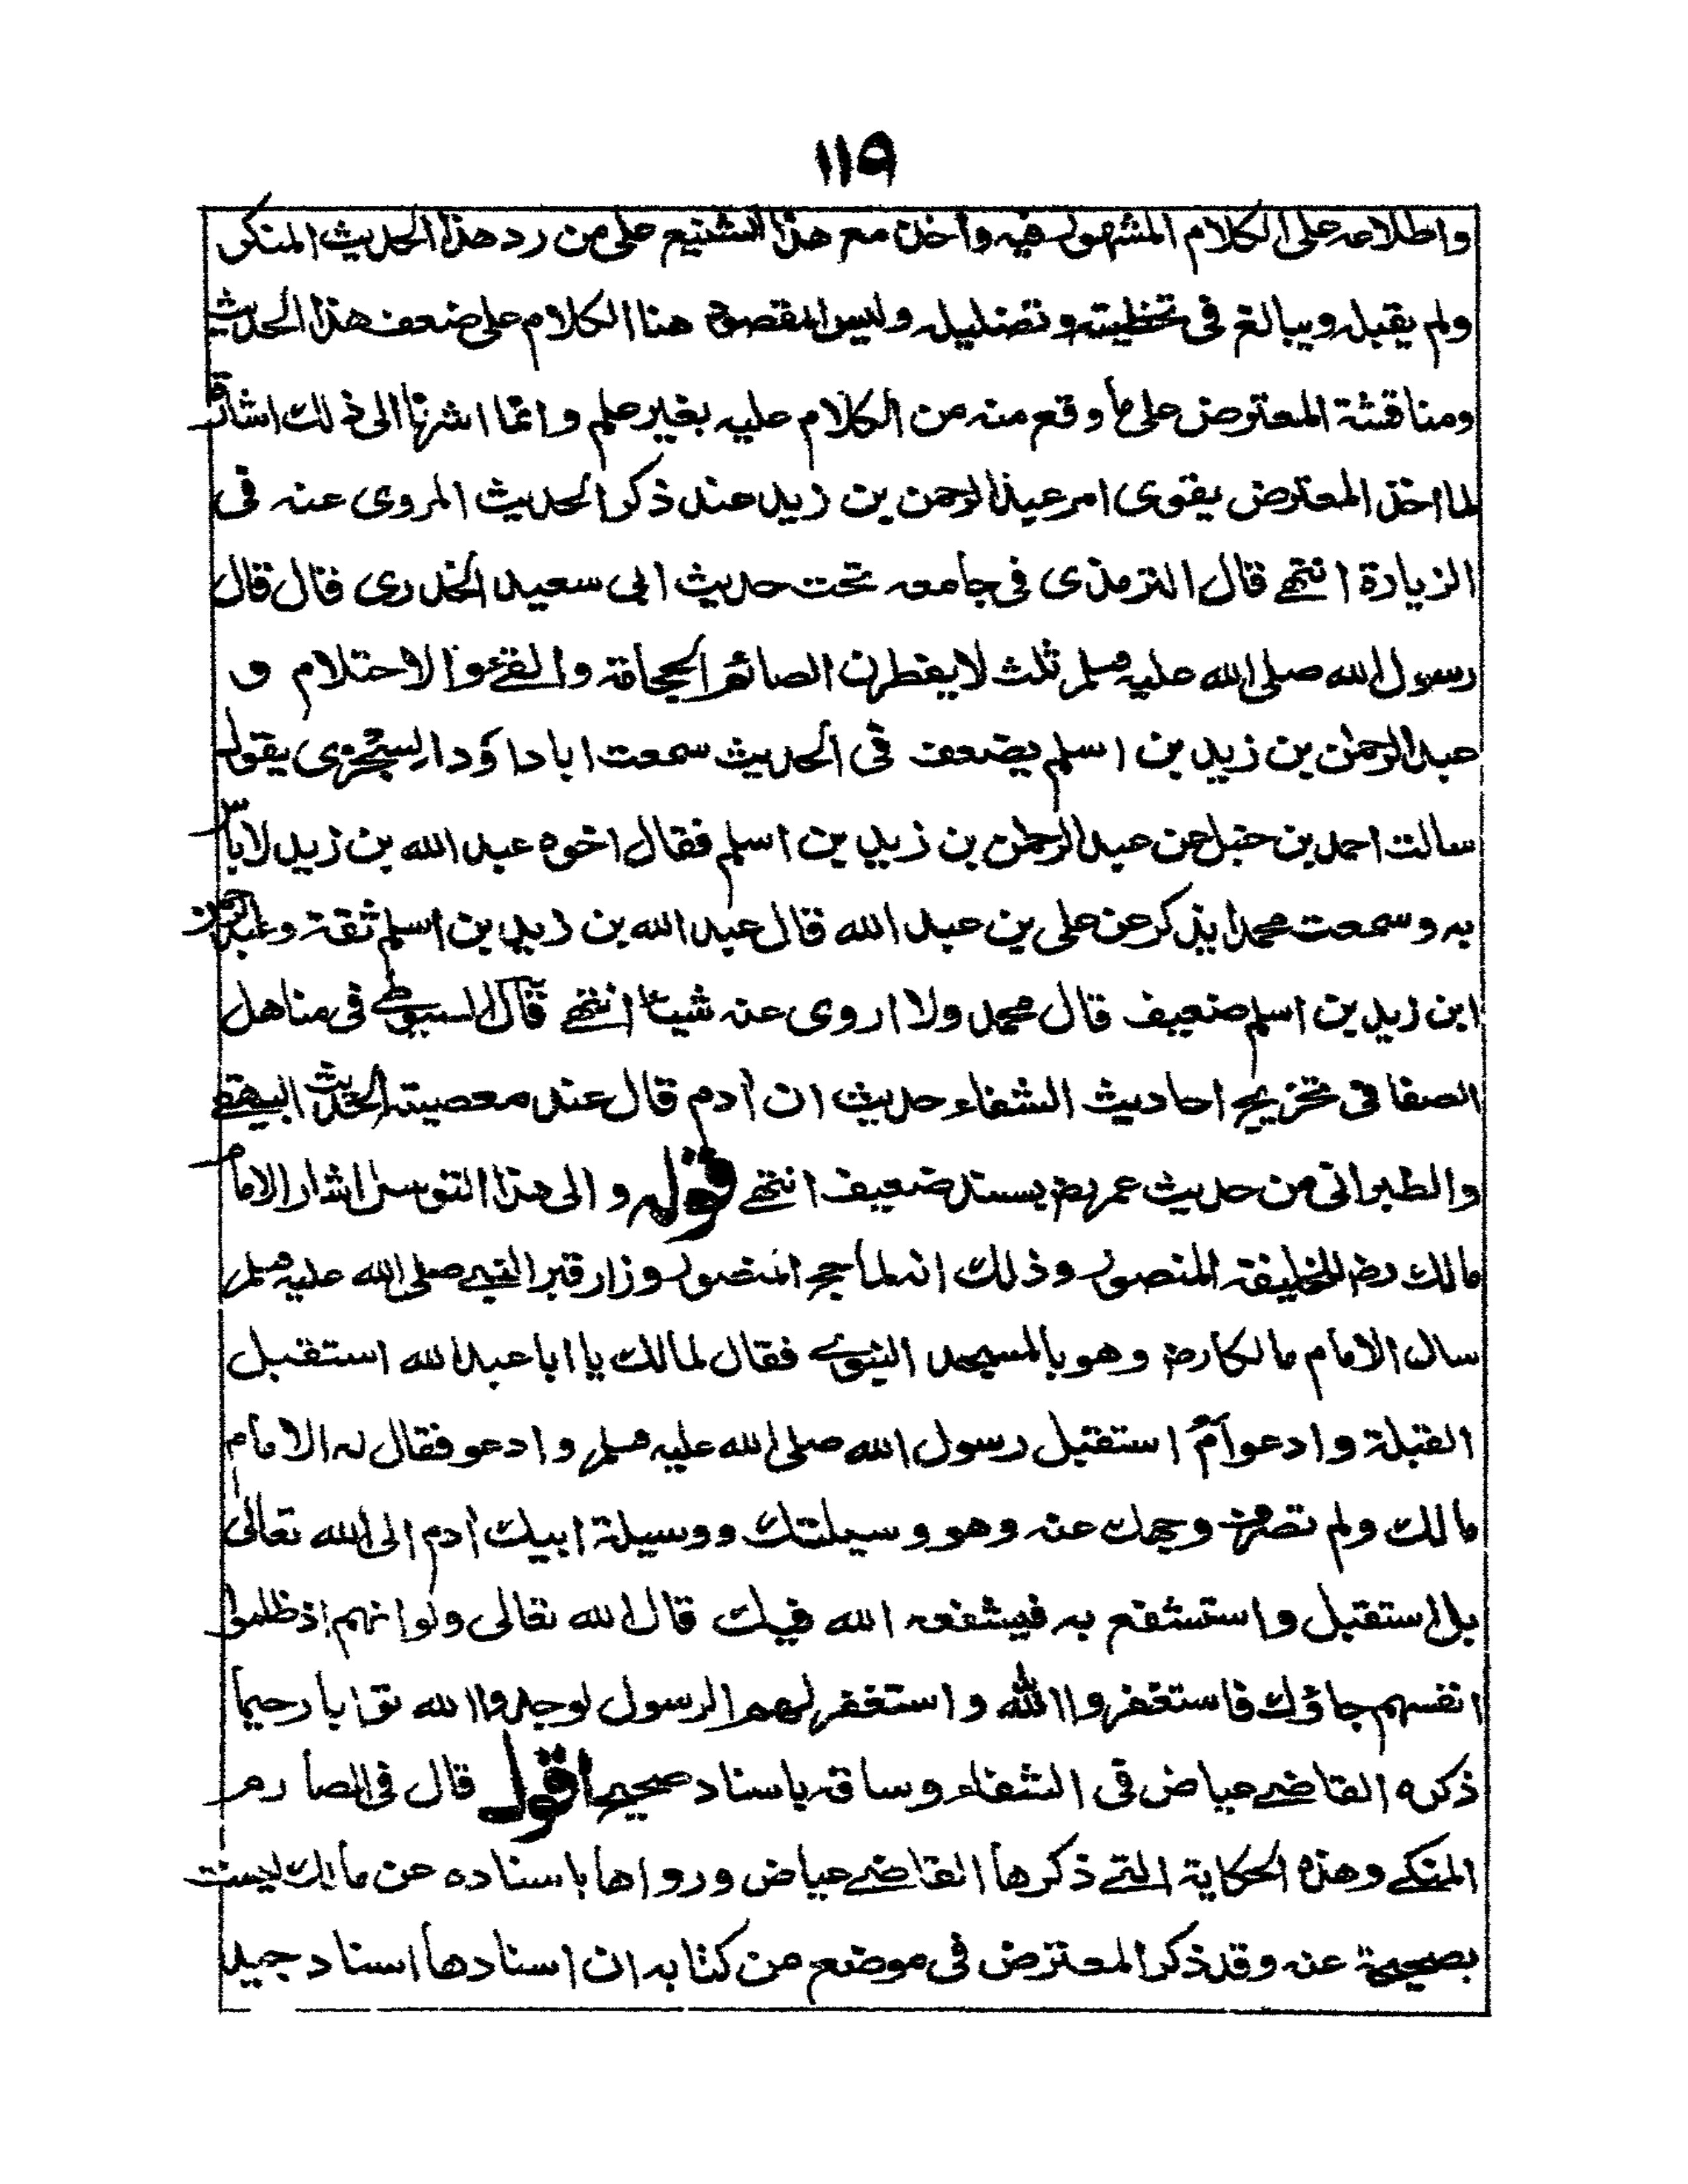 ١١٩
واطلاعه على الكلام المشهور فيه وأخذ مع هذا التشنيع على من رد هذا الحديث المنكر
ولم يقبله ويبالغ فى تخطيته وتضليله وليس المقصود هنا الكلام على ضعف هذا الحديث
ومناقشة المعترض على ما وقع منه من الكلام عليه بغير علم وانما اشرنا الى ذلك اشارة
لما اخذ المعترض يقوى امر عبد الرحمن بن زيد عند ذكر الحديث المروى عنه فى
الزيارة انتهى قال الترمذى فى جامعه تحت حديث ابى سعيد الخدرى قال قال
رسول الله صلى الله عليه وسلم ثلث لا يفطرن الصائم الحجامة والقئ والاحتلام و
عبد الرحمٰن بن زيد بن اسلم يضعف فى الحديث سمعت ابا داؤد السجزى يقول
سالت احمد بن حنبل عن عبد الرحمٰن بن زيد بن اسلم فقال اخوه عبد الله بن زيد لا باس
به وسمعت محمدا يذكر عن على بن عبد الله قال عبد الله بن زيد بن اسلم ثقة وعبد الرحمن
ابن زيد بن اسلم ضعيف قال محمد ولا اروى عنه شيئا انتهى قال السيوطى فى مناهل
الصفا فى تخريج احاديث الشفاء حديث ان آدم قال عند معصيته الحديث البيهقى
والطبرانى من حديث عمر رض بسند ضعيف انتهى قوله والى هذا التوسل اشار الامام
مالك رض للخليفة المنصور وذلك انه لما حج المنصور وزار قبر النبى صلى الله عليه وسلم
سال الامام مالكا رض وهو بالمسجد النبوى فقال لمالك يا ابا عبد الله استقبل
القبلة وادعو أم استقبل رسول الله صلى الله عليه وسلم وادعو فقال له الامام
مالك ولم تصرف وجهك عنه وهو وسيلتك ووسيلة ابيك آدم الى الله تعالى
بل استقبل واستشفع به فيشفعه الله فيك قال الله تعالى ولو انهم اذ ظلموا
انفسهم جاؤك فاستغفروا الله واستغفر لهم الرسول لوجدوا الله توابا رحيما
ذكره القاضى عياض فى الشفاء وساقه باسناد صحيح اقول قال فى الصارم
المنكى وهذه الحكاية التى ذكرها القاضى عياض ورواها باسناده عن مالك ليست
بصحيحة عنه وقد ذكر المعترض فى موضع من كتابه ان اسنادها اسناد جيد